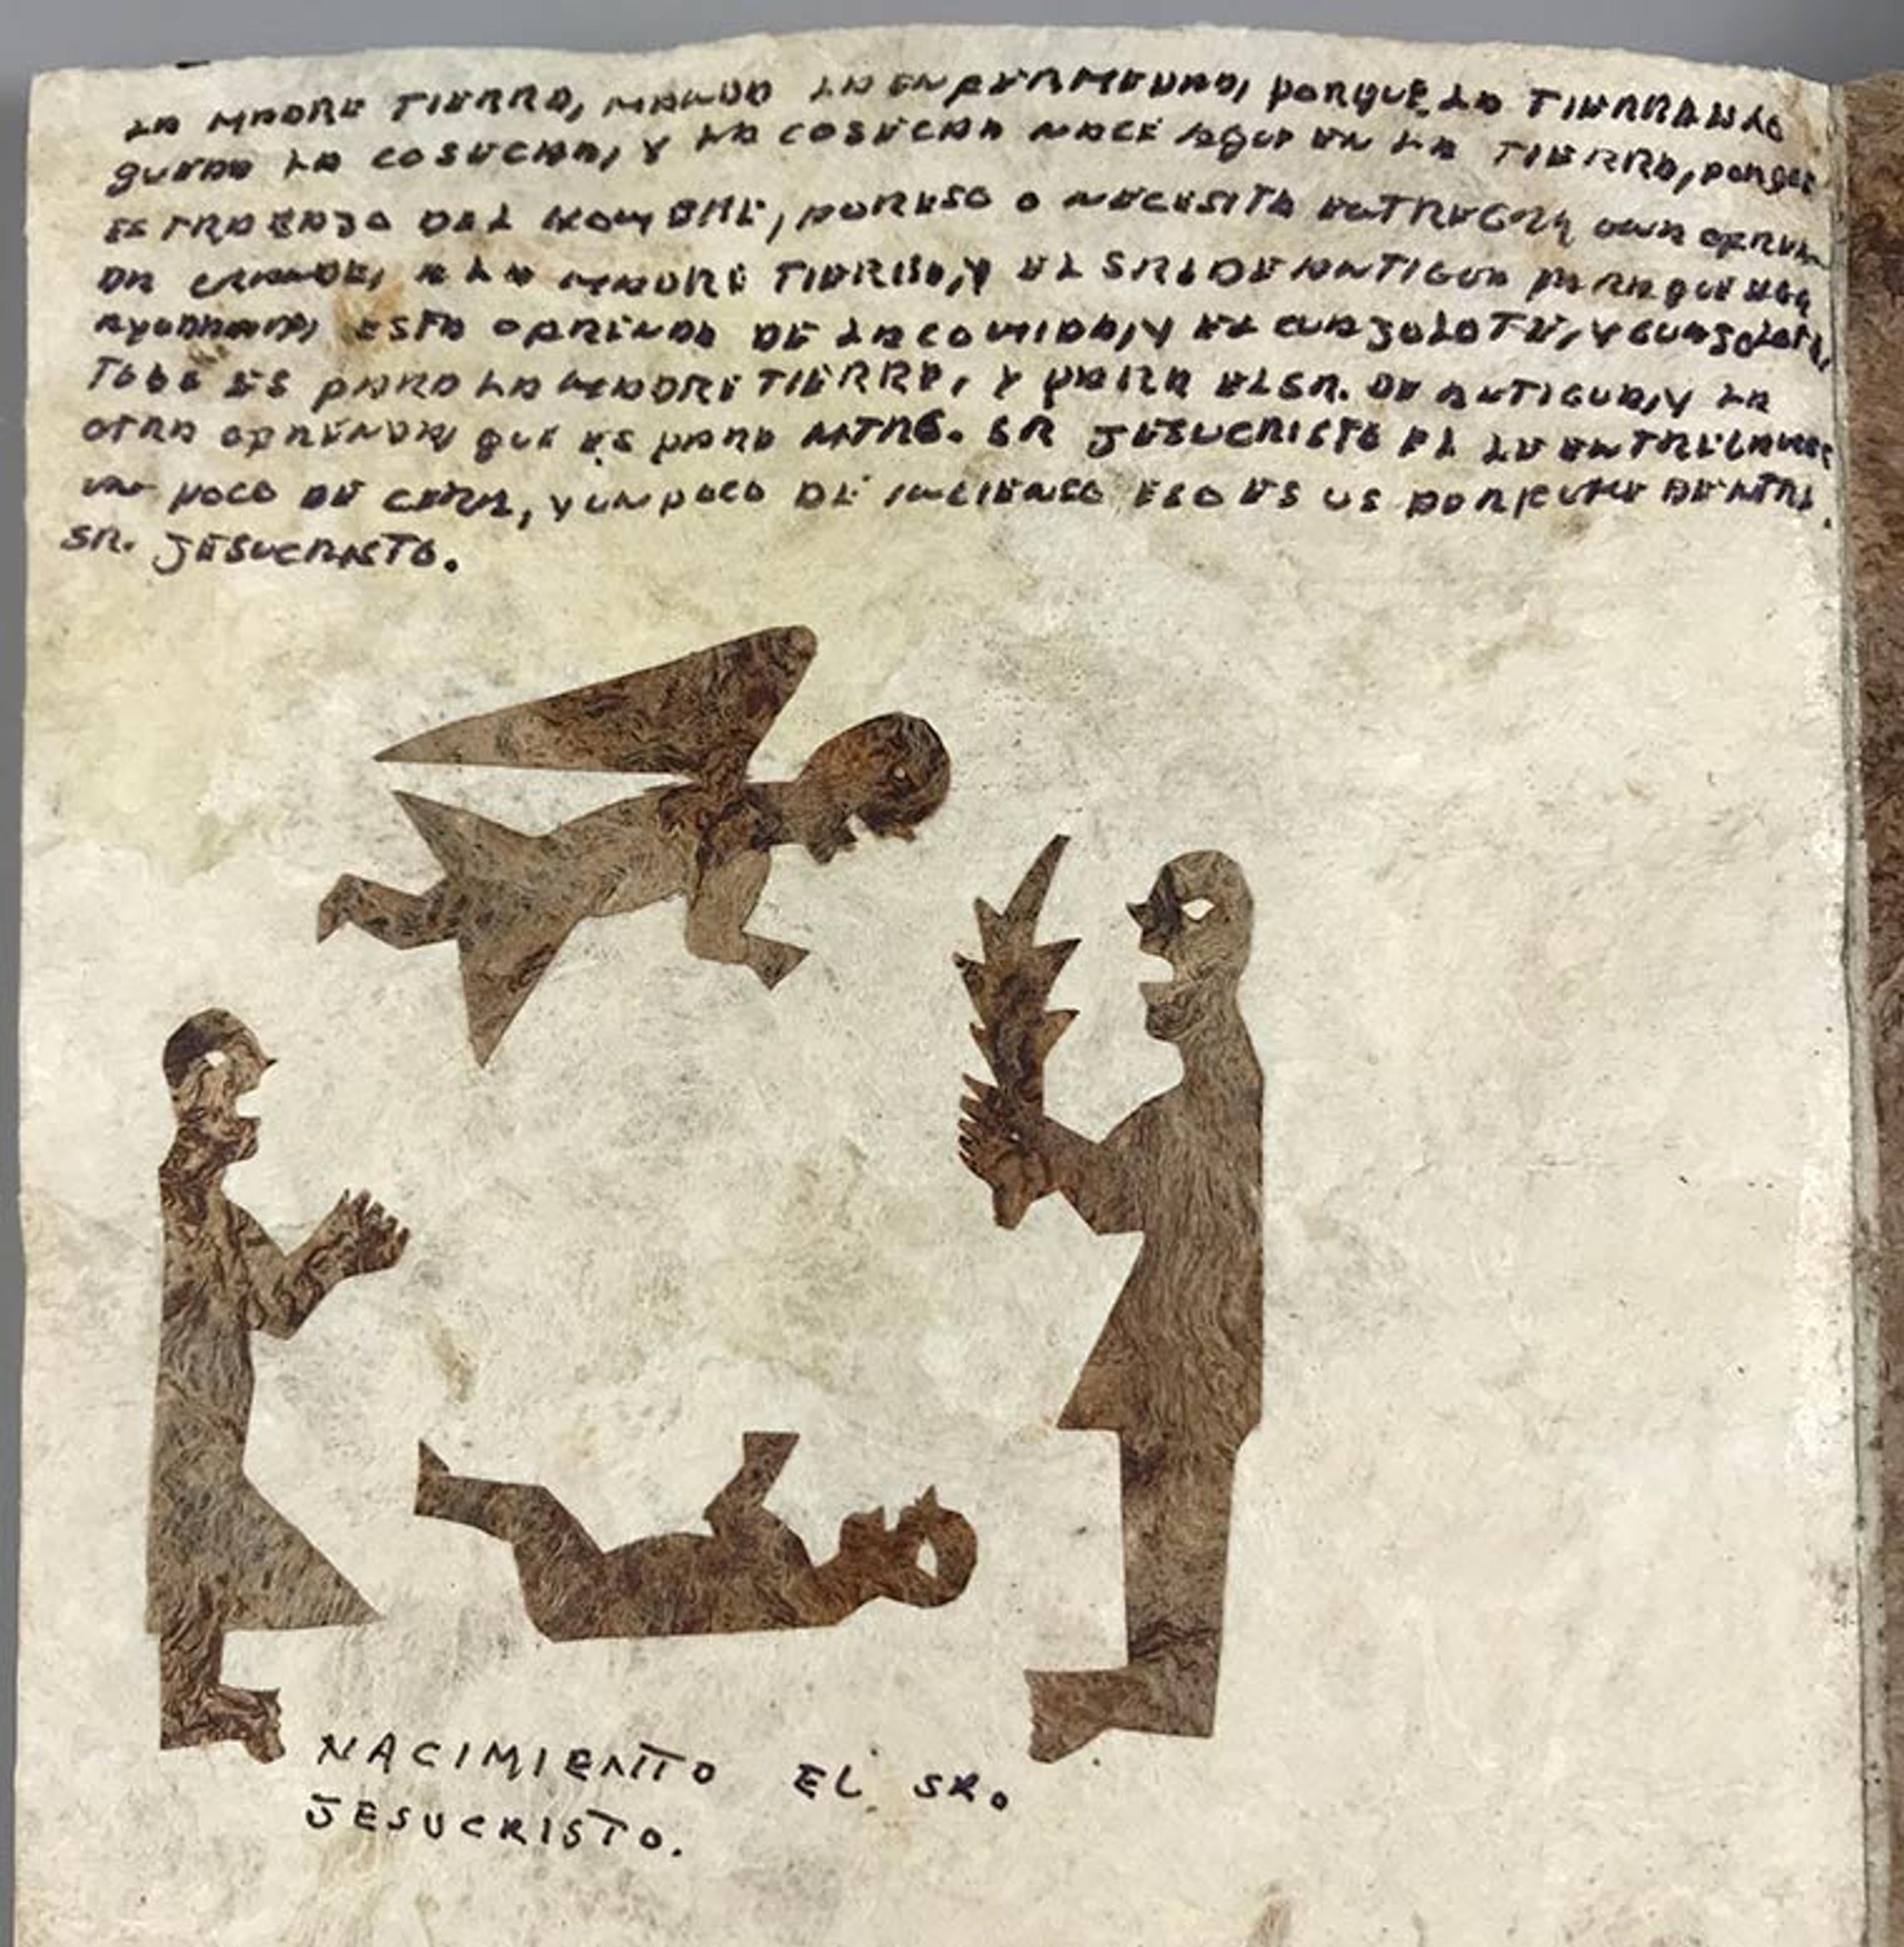 LA MADRE TIERRA, MANDA LA ENFERMEDAD, PORQUE LA TIERRA
LA COSECHA, Y LA COSECHA NACE AQUI EN LA TIERRA, PORQUE
ES TRABAJO DEL HOMBRE, POR ESO NECESITA ENTREGAR UNA OFRENDA
GRANDE, A LA MADRE TIERRA, Y EL SR. DE ANTIGUA PARA QUE
ESTA OFRENDA DE LA COMIDA, Y EL GUAJOLOTE, Y
TODO ES PARA LA MADRE TIERRA, Y PARA EL SR. DE ANTIGUA, Y LA
OTRA OFRENDA QUE ES PARA NTRO. SR JESUCRISTO EL LE
UN POCO DE CERA, Y UN POCO DE INCIENSO ESO ES
SR. JESUCRISTO.
NACIMIENTO EL SR.
JESUCRISTO.